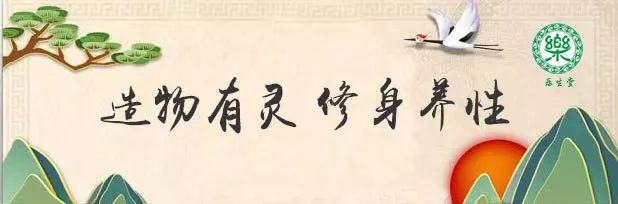 造物有灵 修身养性
樂
乐生堂